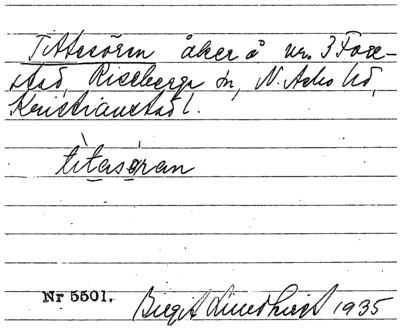 Tittesören åker å nr. 3 Fore-
stad, Riseberga sn, N. Åsbo hd,
Kristianstad l.
tìtasǫran
Nr 5501. Birgit Lindkvist 1935